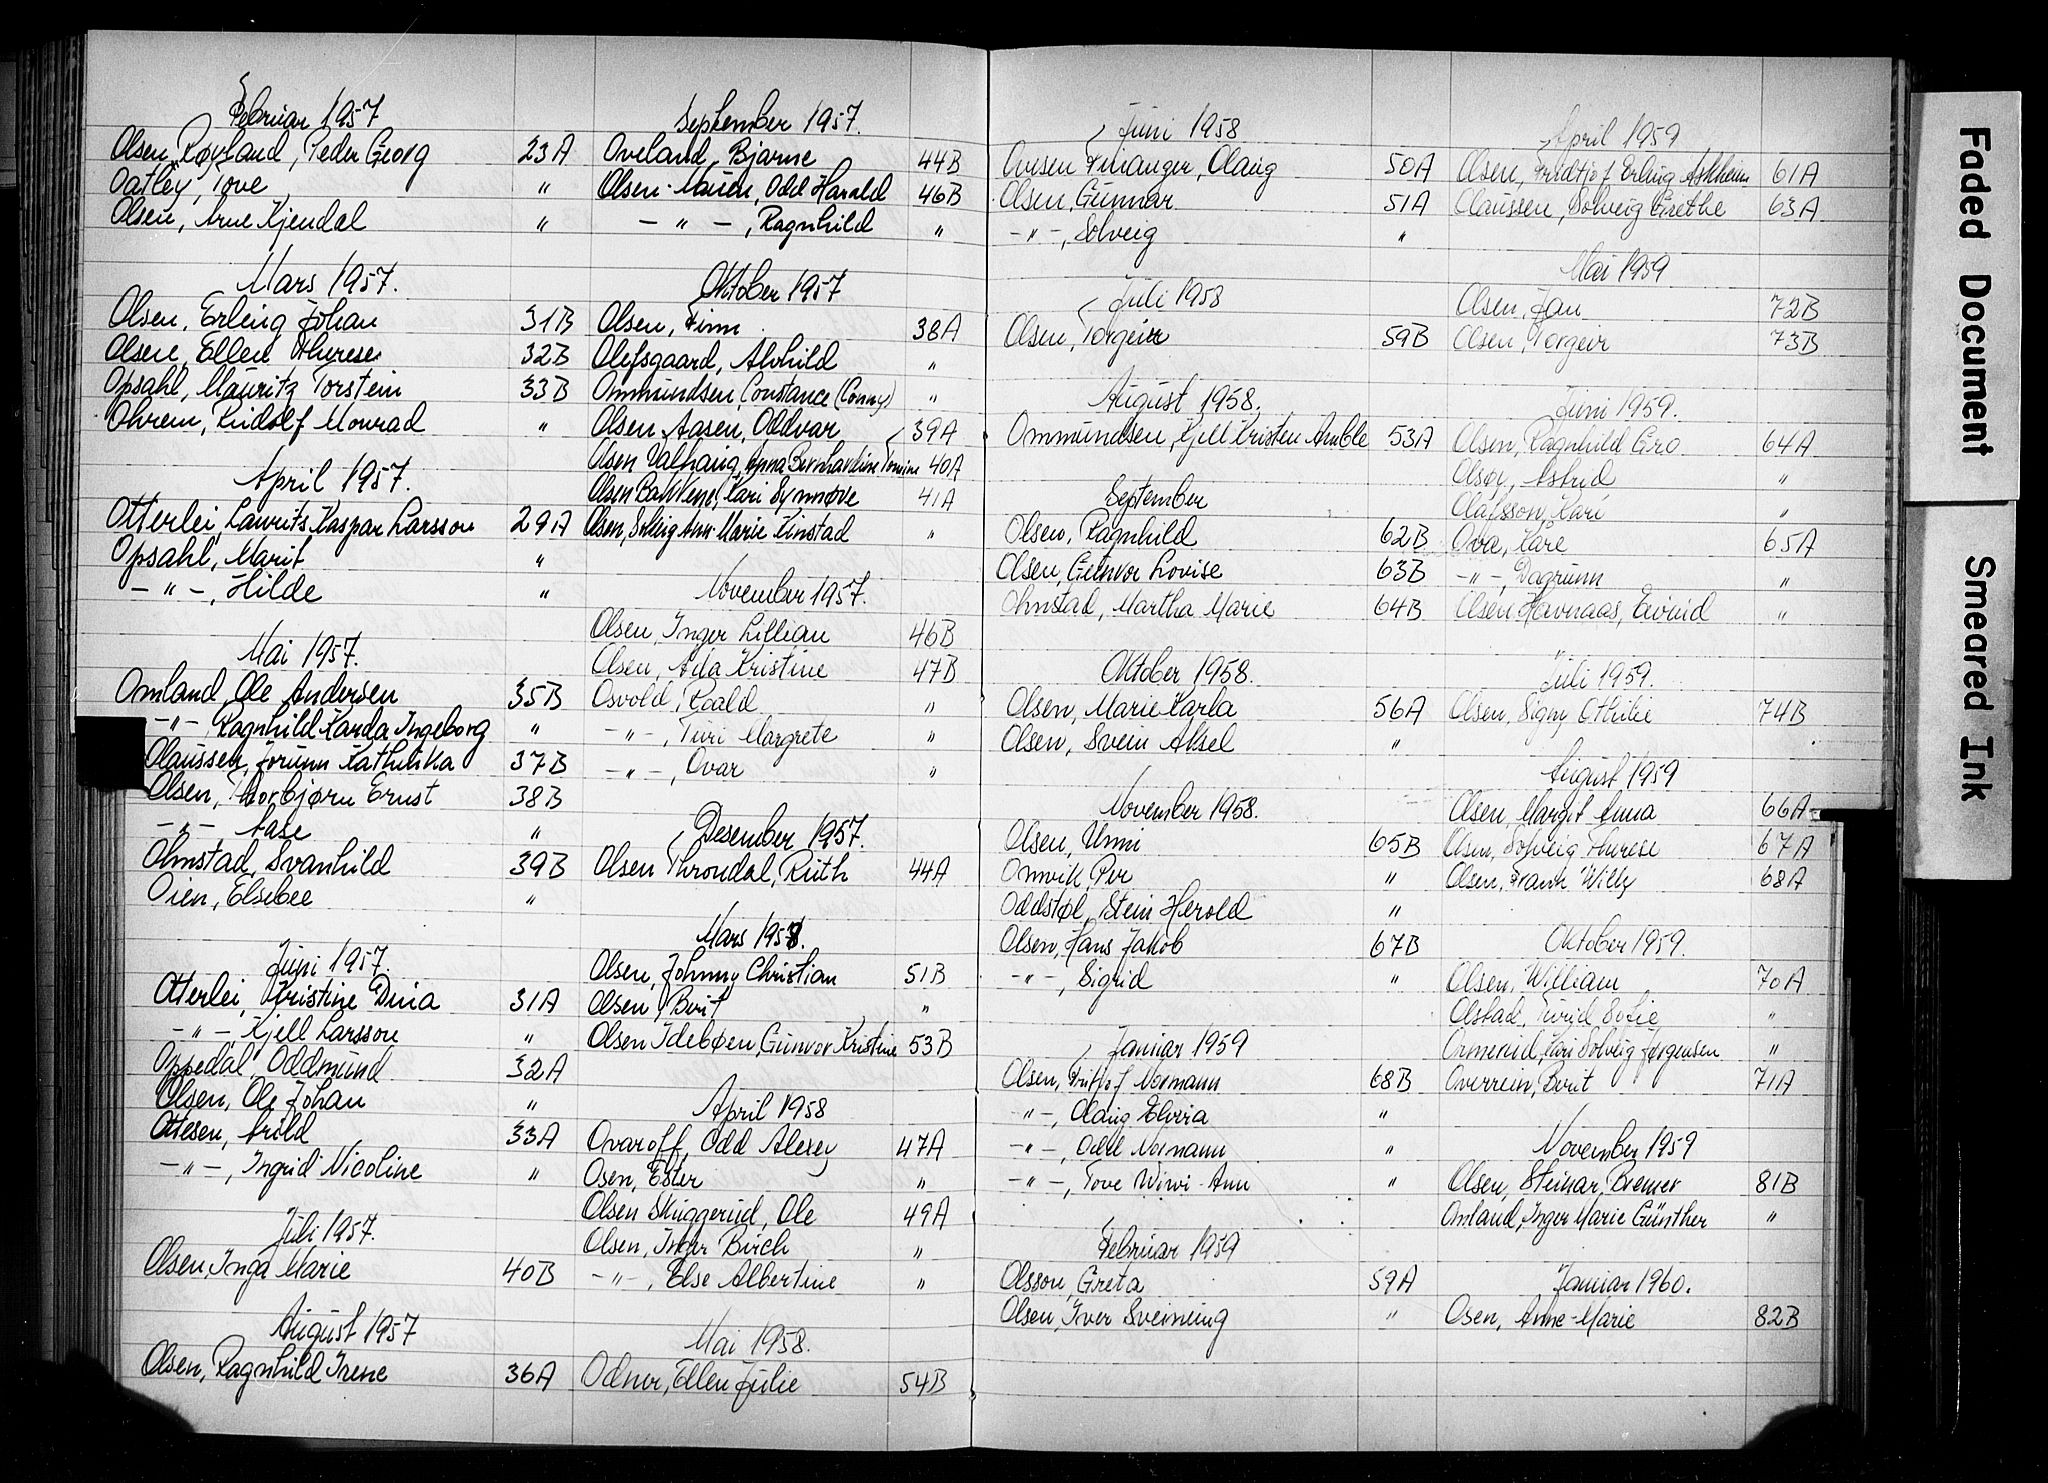 Februar 1957
Olsen Røyland, Peder Georg 23A
Oatley, Tove "
Olsen, Arne Kjendal "
Mars 1957.
Olsen, Erling Johan 31B
Olsen, Ellen Therese 32B
Opsahl, Mauritz Torstein 33B
Ohrem, Rudolf Monrad "
April 1957.
Otterlei, Laurits Kaspar Larsson 29A
Opsahl, Marit "
-"-, Hilde "
Mai 1957.
Omland, Ole Andersen 35B
-"- Ragnhild Karda Ingeborg "
Olaussen, Jorunn Kathinka 37B
Olsen, Thorbjørn Ernst 38B
-"- Aase "
Ohnstad, Svanhild 39B
Oien, Elsebee "
Juni 1957.
Otterlei, Kristine Dina 31A
-"-, Kjell Larsson "
Oppedal, Oddmund 32A
Olsen, Ole Johan "
Ottesen, Arild 33A
-"-, Ingrid Nicoline "
Juli 1957.
Olsen, Inga Marie 40B
August 1957
Olsen, Ragnhild Irene 36A
September 1957.
Oveland, Bjarne 44B
Olsen-Mauen, Odd Harald 46B
-"-, Ragnhild "
Oktober 1957
Olsen, Finn 38A
Olefsgaard, Alvhild "
Ommundsen, Constance (Conny) "
Olsen Aasen, Oddvar 39A
Olsen Valhaug, Anna Bernhardine Tomine 40A
Olsen Bakkene, Kari Synnøve 41A
Olsen, Solveig Ann-Marie Finstad "
November 1957.
Olsen, Inger Lillian 46B
Olsen, Ada Kristine 47B
Osvold, Roald "
-"-, Turi Margrete "
-"-, Ovar "
Desember 1957.
Olsen Throndal, Ruth 44A
Mars 1958.
Olsen, Johnny Christian 51B
Olsen, Berit "
Olsen Idebøen, Gunvor Kristine 53B
April 1958
Ovaroff, Odd Alexey 47A
Osen, Ester "
Olsen Skuggerud, Ole 49A
Olsen, Inger Birch "
-"-, Else Albertine "
Mai 1958.
Odner, Ellen Julie 54B
Juni 1958
Ovesen Finanger, Olaug 50A
Olsen, Gunnar 51A
-"-, Solveig "
Juli 1958
Olsen, Torgeir 59B
August 1958.
Ommundsen, Kjell Kristen Amble 53A
September
Olsen, Ragnhild 62B
Olsen, Gunvor Lovise 63B
Ohnstad, Martha Marie 64B
Oktober 1958.
Olsen, Marie Karla 56A
Olsen, Svein Aksel "
November 1958.
Olsen, Unni 65B
Omvik, Per "
Oddstøl, Stein Herold "
Olsen, Hans Jakob 67B
-"-, Sigrid "
Januar 1959
Olsen, Frithjof Normann 68B
"-, Olaug Elvira "
-"-, Odd Normann "
-"-, Tove Wiwi-Ann "
Februar 1959
Olsson, Greta 59A
Olsen, Iver Sveinung "
April 1959
Olsen, Fridtjof Erling Askheim 61A
Olaussen, Solveig Grethe 63A
Mai 1959
Olsen, Jan 72B
Olsen, Torgeir 73B
Juni 1959.
Olsen, Ragnhild Gro 64A
Olsøy, Astrid "
Olafsson, Kari "
Ova, Kåre 65A
-"-, Dagrunn "
Olsen Havnaas, Eivind "
Juli 1959.
Olsen, Signy Othilie 74B
August 1959
Olsen, Margit Anna 66A
Olsen, Solveig Therese 67A
Olsen, Frank Willy 68A
Oktober 1959.
Olsen, William 70A
Olstad, Turid Sofie "
Ormerud, Kari Solveig Jørgensen "
Overrein, Berit 71A
November 1959
Olsen, Steinar Bremer 81B
Omland, Inger Marie Günther "
Januar 1960.
Osen, Anne-Marie 82B
Faded Document
Smeared Ink